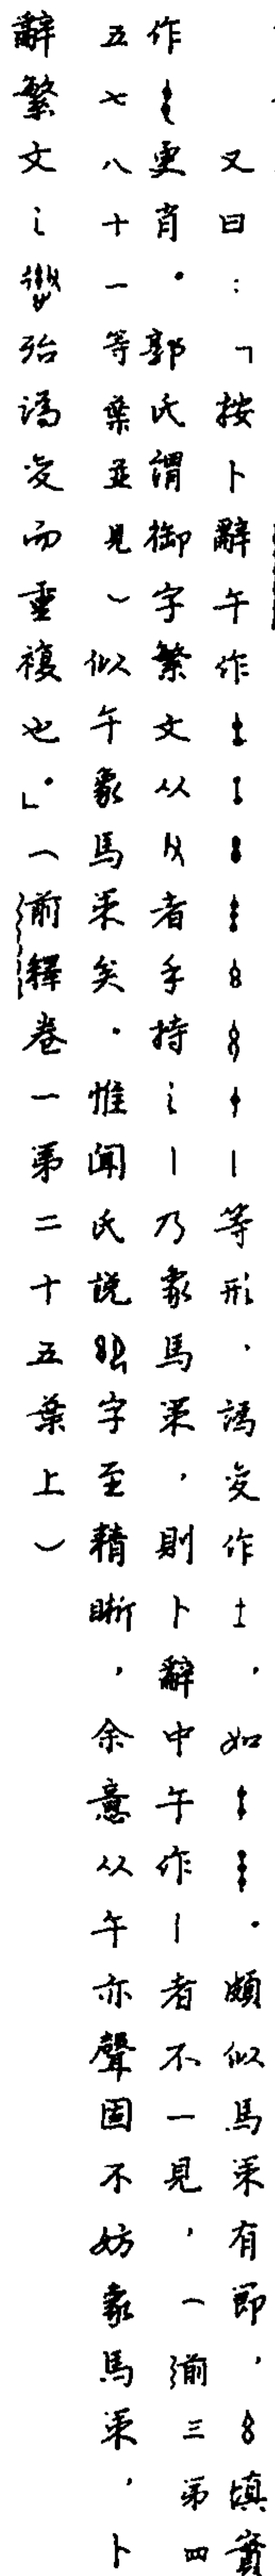 又曰：「按卜辭午作等形，譌変作士，如。頗似馬策有節，填實
作更肖。郭氏謂御字繁文从又者手持之丨乃象馬策，則卜辭中午作丨者不一見，（前三第四
五七八十一等葉並見）似午象馬策矣。惟聞氏說字至精晰，余意从午亦聲固不妨象馬策，卜
辭繁文之殆譌変而重複也。」（前釋卷一第二十五葉上）